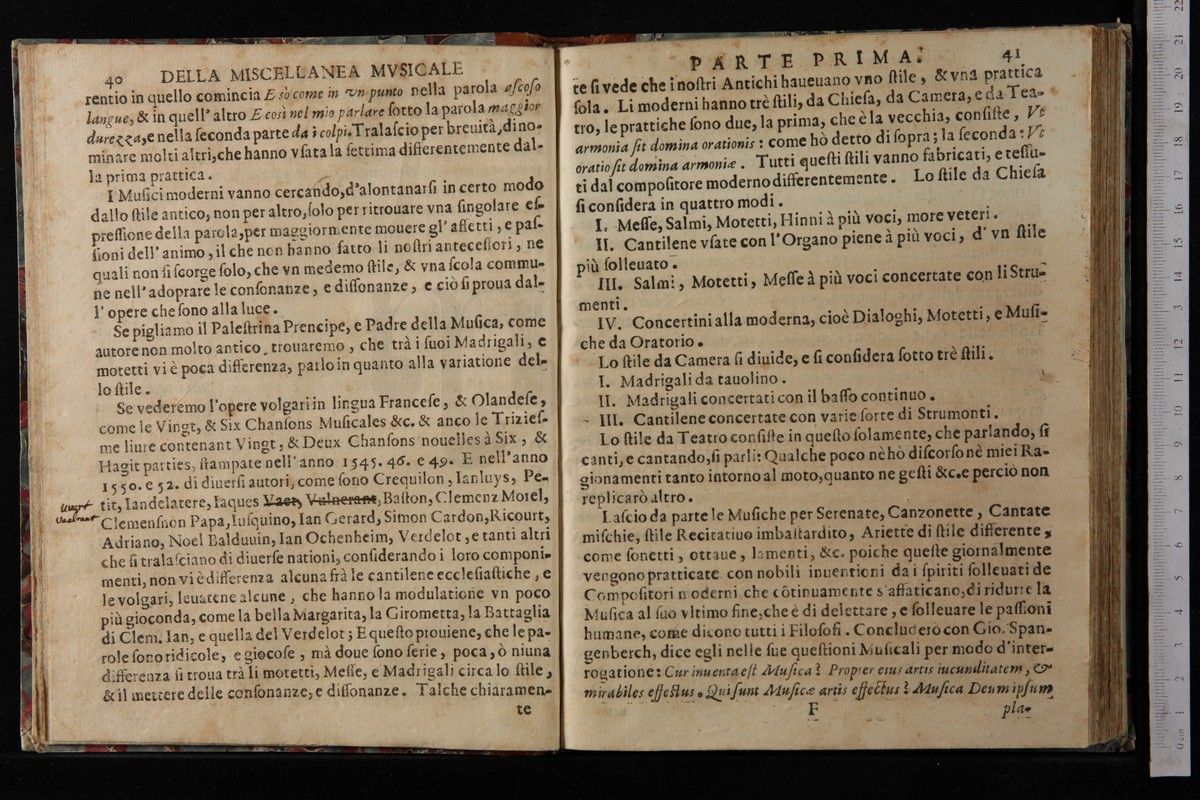 40 DELLA MISCELLANEA MVSICALE
rentio in quello comincia E sò come in vn punto nella parola ascoso
langue, & in quell' altro E così nel mio parlare sotto la parola maggior
durezza, e nella seconda parte da i colpi. Tralascio per breuità, dino-
minare molti altri, che hanno vsata la settima differentemente dal-
la prima prattica.
I Musici moderni vanno cercando, d'alontanarsi in certo modo
dallo stile antico, non per altro, solo per ritrouare vna singolare es-
pressione della parola, per maggiormente mouere gl' affetti, e pas-
sioni dell' animo, il che non hanno fatto li nostri antecessori, ne
quali non si scorge solo, che vn medemo stile, & vna scola commu-
ne nell' adoprare le consonanze, e dissonanze, e ciò si proua dal-
l' opere che sono alla luce.
Se pigliamo il Palestrina Prencipe, e Padre della Musica, come
autore non molto antico, trouaremo, che trà i suoi Madrigali, e
motetti vi è poca differenza, parlo in quanto alla variatione del-
lo stile.
Se vederemo l'opere volgari in lingua Francese, & Olandese,
come le Vingt, & Six Chansons Musicales &c. & anco le Trizies-
me liure contenant Vingt, & Deux Chansons nouelles à Six, &
Hagit parties, stampate nell' anno 1545. 46. e 49. E nell'anno
1550. e 52. di diuersi autori, come sono Crequilon, Ianluys, Pe-
tit, Iandelatere, Iaques Vaet, Vulnerant, Baston, Clemenz Morel,
Clemensnon Papa, Iusquino, Ian Gerard, Simon Cardon, Ricourt,
Adriano, Noel Balduuin, Ian Ochenheim, Verdelot, e tanti altri
che si tralasciano di diuerse nationi, considerando i loro componi-
menti, non vi è differenza alcuna frà le cantilene ecclesiastiche, e
le volgari, leuatene alcune, che hanno la modulatione vn poco
più gioconda, come la bella Margarita, la Girometta, la Battaglia
di Clem. Ian, e quella del Verdelot; E questo prouiene, che le pa-
role sono ridicole, e giocose, mà doue sono serie, poca, ò niuna
differenza si troua trà li motetti, Messe, e Madrigali circa lo stile,
& il mettere delle consonanze, e dissonanze. Talche chiaramen-
te
PARTE PRIMA. 41
te si vede che i nostri Antichi haueuano vno stile, & vna prattica
sola. Li moderni hanno trè stili, da Chiesa, da Camera, e da Tea-
tro, le prattiche sono due, la prima, che è la vecchia, consiste, Vt
armonia sit domina orationis: come hò detto di sopra; la seconda: Vt
oratio sit domina armoniæ. Tutti questi stili vanno fabricati, e tessu-
ti dal compositore moderno differentemente. Lo stile da Chiesa
si considera in quattro modi.
I. Messe, Salmi, Motetti, Hinni à più voci, more veteri.
II. Cantilene vsate con l'Organo piene à più voci, d' vn stile
più solleuato.
III. Salmi, Motetti, Messe à più voci concertate con li Stru-
menti.
IV. Concertini alla moderna, cioè Dialoghi, Motetti, e Musi-
che da Oratorio.
Lo stile da Camera si diuide, e si considera sotto trè stili.
I. Madrigali da tauolino.
II. Madrigali concertati con il basso continuo.
III. Cantilene concertate con varie sorte di Strumonti.
Lo stile da Teatro consiste in questo solamente, che parlando, si
canti, e cantando, si parli: Qualche poco nè hò discorso nè miei Ra-
gionamenti tanto intorno al moto, quanto ne gesti &c. e perciò non
replicarò altro.
Lascio da parte le Musiche per Serenate, Canzonette, Cantate
mischie, stile Recitatiuo imbastardito, Ariette di stile differente,
come sonetti, ottaue, lamenti, &c. poiche queste giornalmente
vengono pratticate con nobili inuentioni da i spiriti solleuati de
Compositori moderni che cõtinuamente s'affaticano, di ridurre la
Musica al suo vltimo fine, che è di delettare, e solleuare le passioni
humane, come dicono tutti i Filosofi. Concluderò con Gio. Span-
genberch, dice egli nelle sue questioni Musicali per modo d'inter-
rogatione: Cur inuenta est Musica? Propter eius artis iucunditatem, &
mirabiles effectus. Qui sunt Musicæ artis effectus? Musica Deum ipsum
F pla-